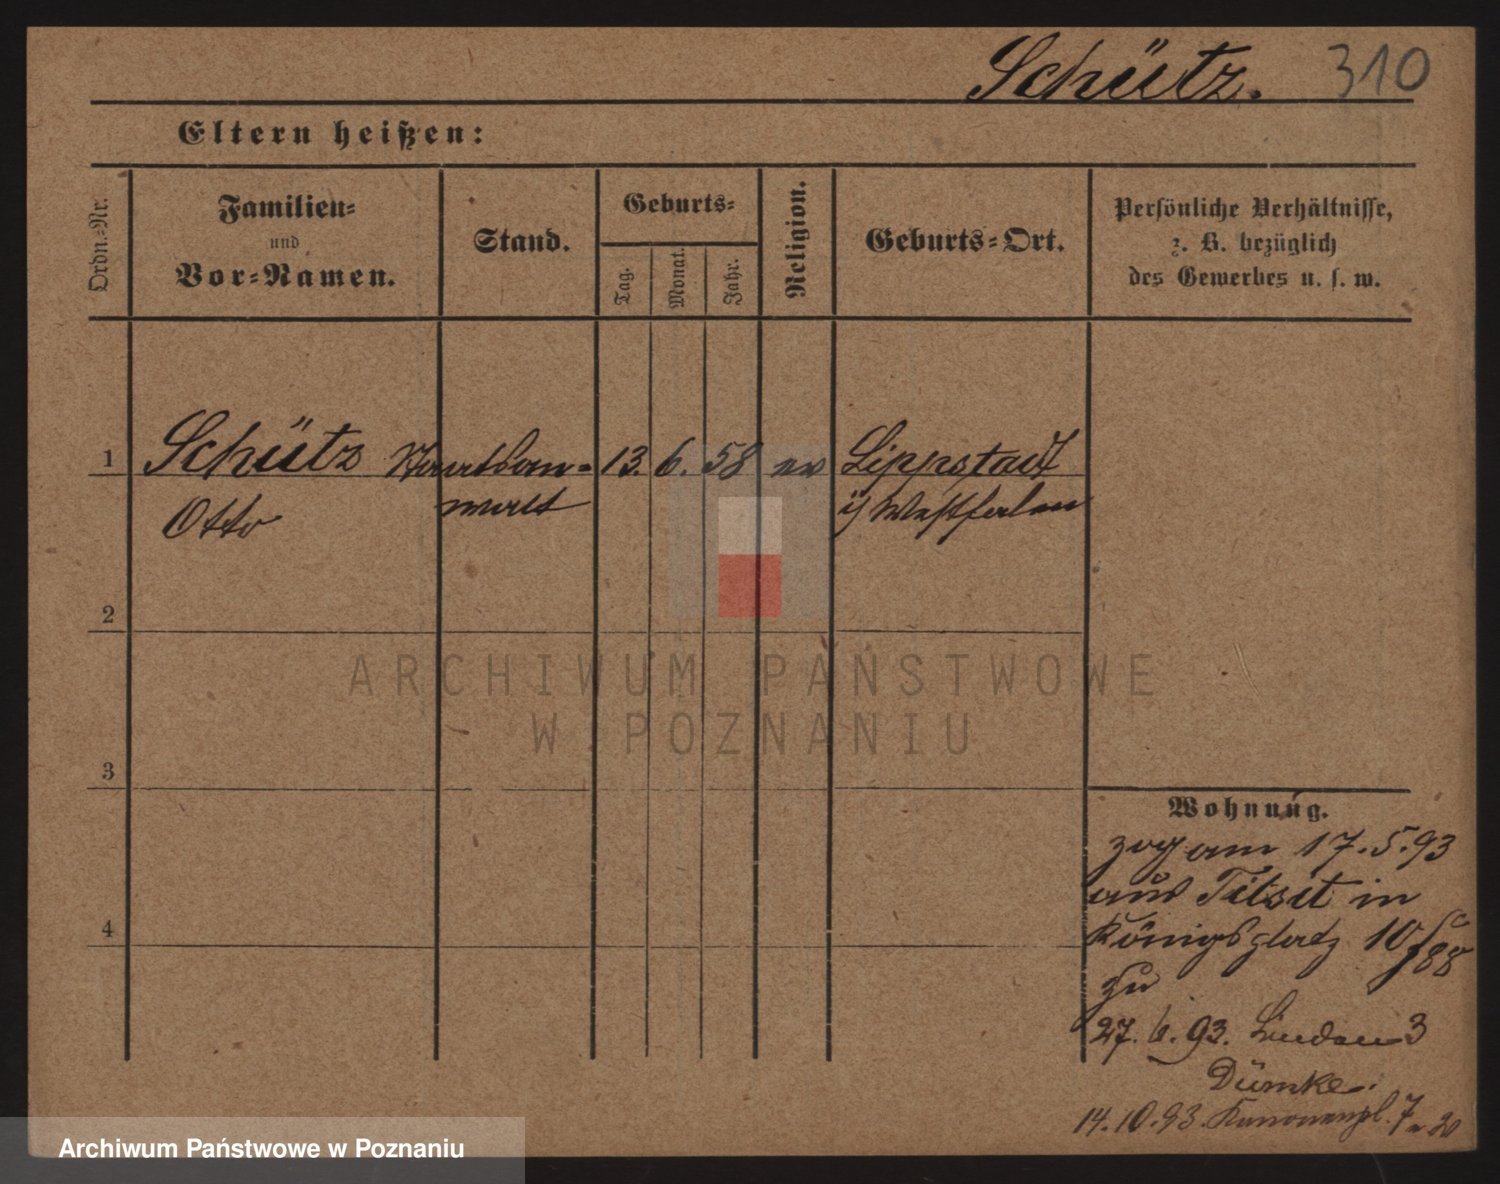 Schütz. 310
Eltern heißen:
Ordn.-Nr.
Familien-
und
Vor-Namen.
Stand.
Geburts-
Tag.
Monat.
Jahr.
Religion.
Geburts-Ort.
Persönliche Verhältnisse,
z. B. bezüglich
des Gewerbes u. s. w.
1 Schütz Staatsan- 13. 6. 58 ev Lippstadt
Otto walt i/ Westfalen
2
ARCHIWUM PAŃSTWOWE
W POZNANIU
3
Wohnung.
zog am 17.5.93
aus Tilsit in
Königsplatz 10
zu
4
27. 6. 93. Linden 3
Dümke.
14.10.93. Kanonenpl. 7
Archiwum Państwowe w Poznaniu